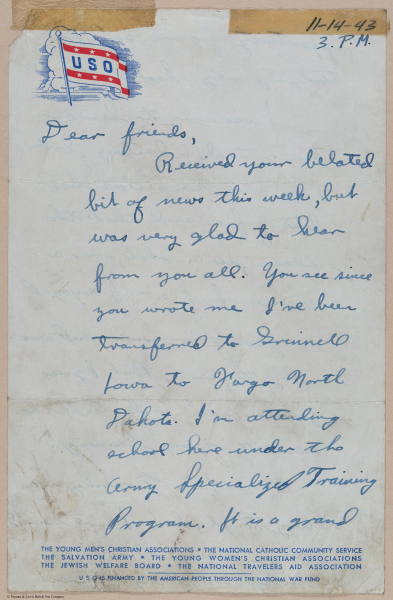 11-14-43
3. P.M.
USO
Dear friends,
Received your belated
bit of news this week, but
was very glad to hear
from you all. You see since
you wrote me I've been
transferred to Grinnell
Iowa to Fargo North
Dakota. I'm attending
school here under the
Army Specialized Training
Program. It is a grand
THE YOUNG MEN'S CHRISTIAN ASSOCIATIONS • THE NATIONAL CATHOLIC COMMUNITY SERVICE
THE SALVATION ARMY • THE YOUNG WOMEN'S CHRISTIAN ASSOCIATIONS
THE JEWISH WELFARE BOARD • THE NATIONAL TRAVELERS AID ASSOCIATION
U S O IS FINANCED BY THE AMERICAN PEOPLE THROUGH THE NATIONAL WAR FUND